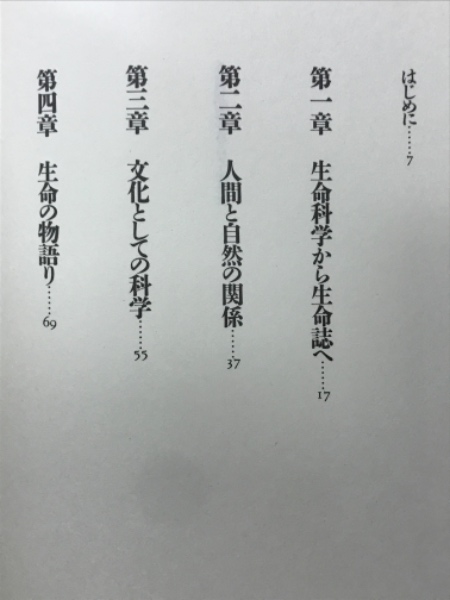 はじめに……7
第一章　生命科学から生命誌へ……17
第二章　人間と自然の関係……37
第三章　文化としての科学……55
第四章　生命の物語り……69